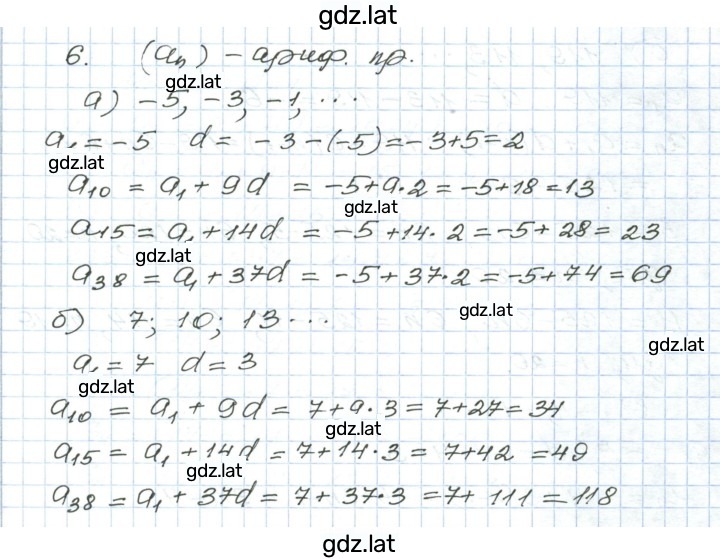 gdz.lat
6. (aₙ) – ариф. пр.
gdz.lat
а) –5, –3, –1, ...
a₁ = –5 d = –3 –(–5) = –3+5 = 2
gdz.lat
a₁₀ = a₁ + 9d = –5+9·2 = –5+18 = 13
gdz.lat
a₁₅ = a₁ + 14d = –5 +14· 2 = –5+ 28 = 23
gdz.lat
a₃₈ = a₁ + 37d = –5 + 37·2 = –5+ 74 = 69
gdz.lat
б) 7; 10; 13 ...
gdz.lat
a₁ = 7 d = 3
gdz.lat
a₁₀ = a₁ + 9d = 7+9·3 = 7+27 = 34
gdz.lat
a₁₅ = a₁ + 14d = 7+14·3 = 7+42 = 49
gdz.lat
a₃₈ = a₁ + 37d = 7 + 37·3 = 7+ 111 = 118
gdz.lat